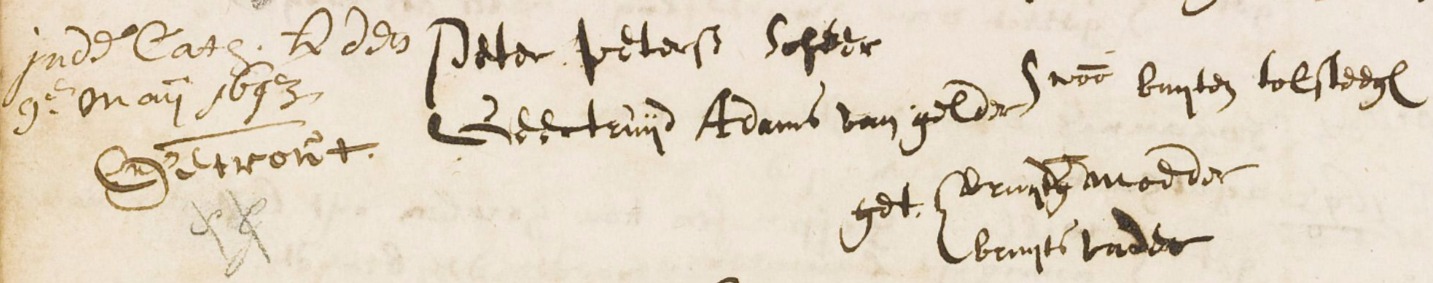 jnde Cath. den
9en Maij 1653
Getrout.
Peter Peterss Scheer
Geertruijd Adams van gelder
woo buijten tolsteegh
get. bruijtgs moeder
bruijts vader